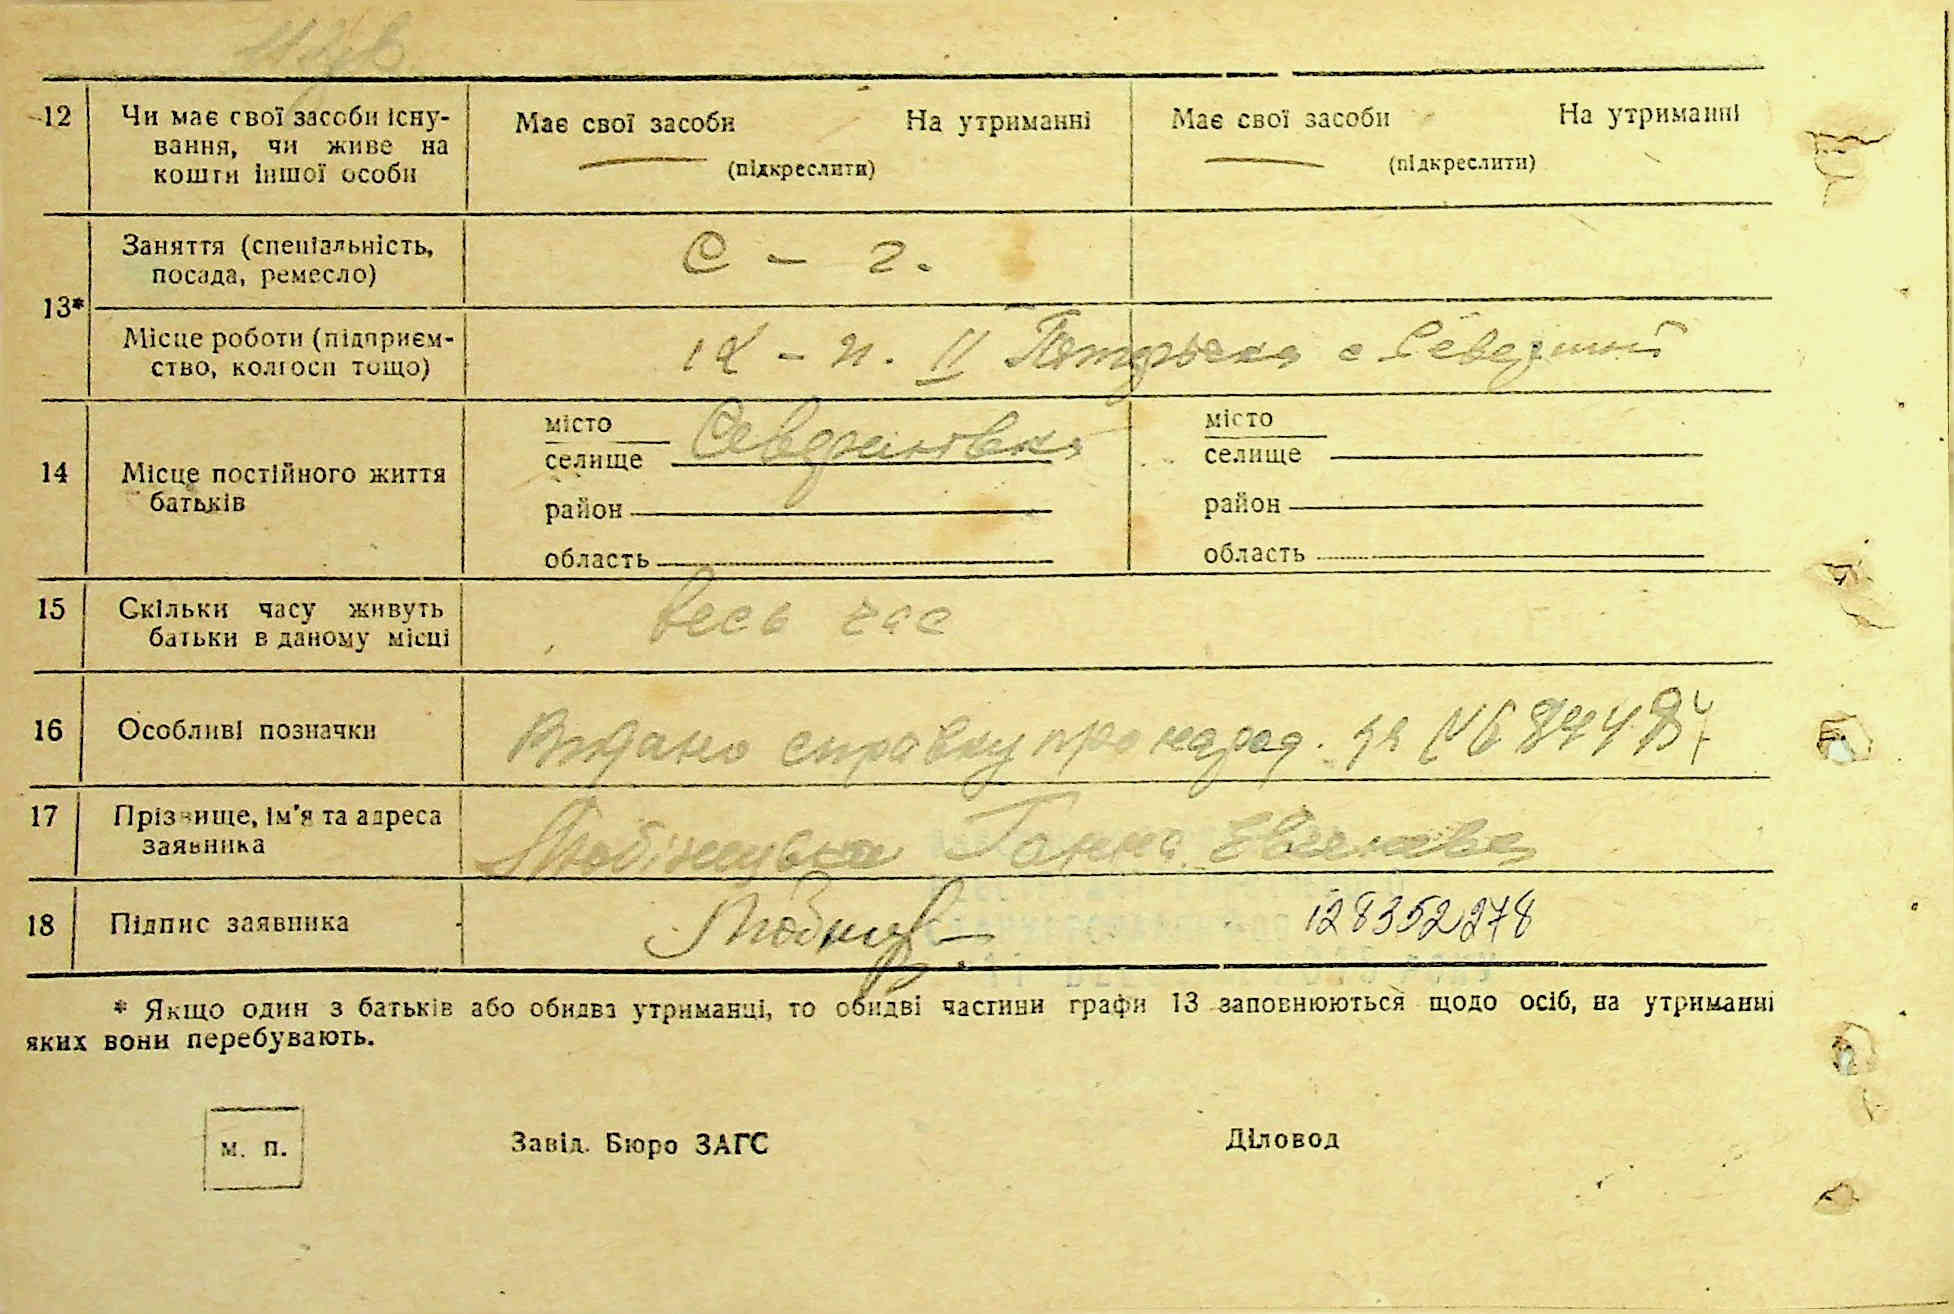 12 Чи має свої засоби існу-
вання, чи живе на
кошти іншої особи
Має свої засоби На утриманні
(підкреслити)
Має свої засоби На утриманні
(підкреслити)
13*
Заняття (спеціальність,
посада, ремесло)
С - г.
Місце роботи (підприєм-
ство, колгосп тощо)
к - п. ІІ
14 Місце постійного життя
батьків
місто
селище Севериновка
район
область
місто
селище
район
область
15 Скільки часу живуть
батьки в даному місці
весь час
16 Особливі позначки
Видано справку про народ. за №
17 Прізвище, ім'я та адреса
заявника
Ганна
18 Підпис заявника
128352278
* Якщо один з батьків або обидва утриманці, то обидві частини графи 13 заповнюються щодо осіб, на утриманні
яких вони перебувають.
м. п.
Завід. Бюро ЗАГС
Діловод